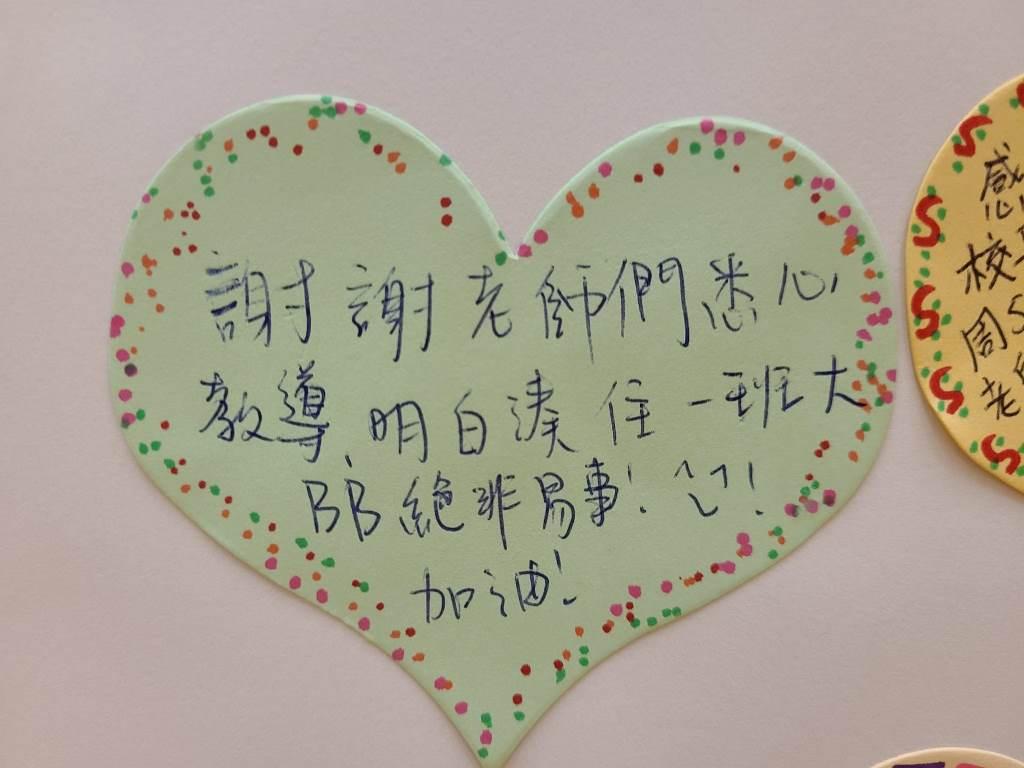 謝謝老師們悉心
教導,明白湊住一班大
BB絕非易事!^_^!
加油!
感
校
周S
老